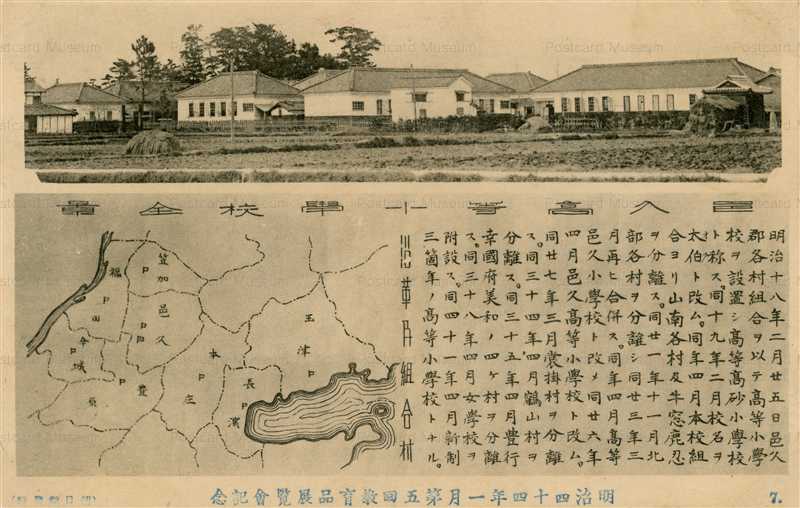 Postcard Museum
邑久高等小學校全景
明治十八年二月廿五日邑久
郡各村組合ヲ以テ高等小學
校ヲ設置シ高等高砂小學校
ト称ス。同十九年二月校名ヲ
太伯ト改ム。同年四月本校組
合ヨリ山南各村及牛窓鹿忍
ヲ分離ス。同廿一年十一月北
部各村ヲ分離シ同廿三年三
月再ビ合併ス。同年四月高等
邑久小學校ト改メ同廿六年
四月邑久高等小學校ト改ム。
同廿七年三月裳掛村ヲ分離
ス。同三十四年四月鶴山村ヲ
分離ス。同三十五年四月豊行
幸國府美和ノ四ケ村ヲ分離
ス。同三十八年四月女學校ヲ
附設ス。同四十一年四月新制
三箇年ノ高等小學校トナル。
沿革及組合村
笠加
福田
邑久
今城
玉津
本庄
豊
長濱
明治四十四年一月第五回教育品展覧會記念
7.